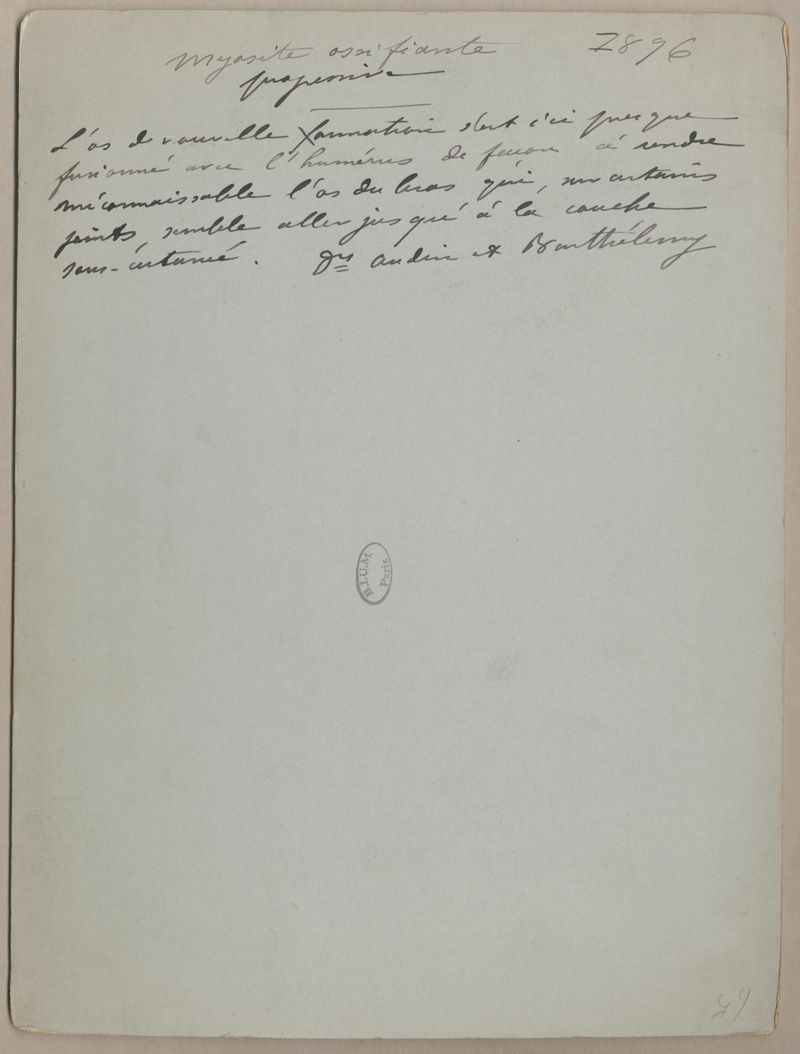 Myosite ossifiante 7896
progressive
L'os de nouvelle formation s'est ici presque
fusionné avec l'humérus de façon à rendre
méconnaissable l'os du bras qui, sur certains
points, semble aller jusqu'à la couche
sous-cutanée. Drs Oudin et Barthélemy
B.I.U.M
Paris